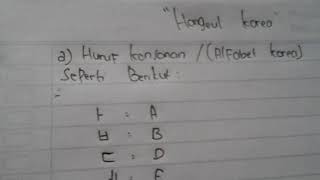 "Hangeul Korea"
a) Huruf konsonan / (Alfabet korea)
Seperti Berikut :
ㅏ : A
ㅂ : B
ㄷ : D